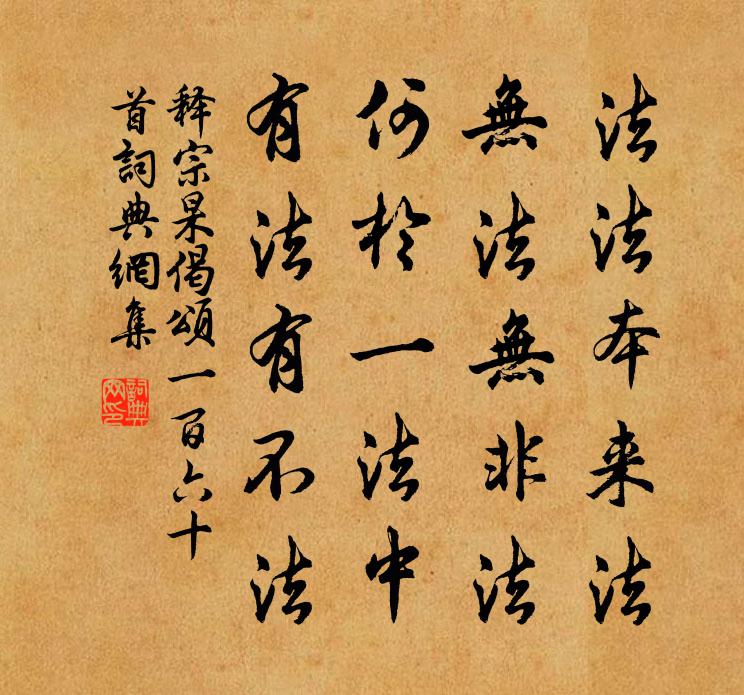 法法本来法
無法無非法
何於一法中
有法有不法
释宗杲偈頌一百六十
首詞典網集
詞典網印